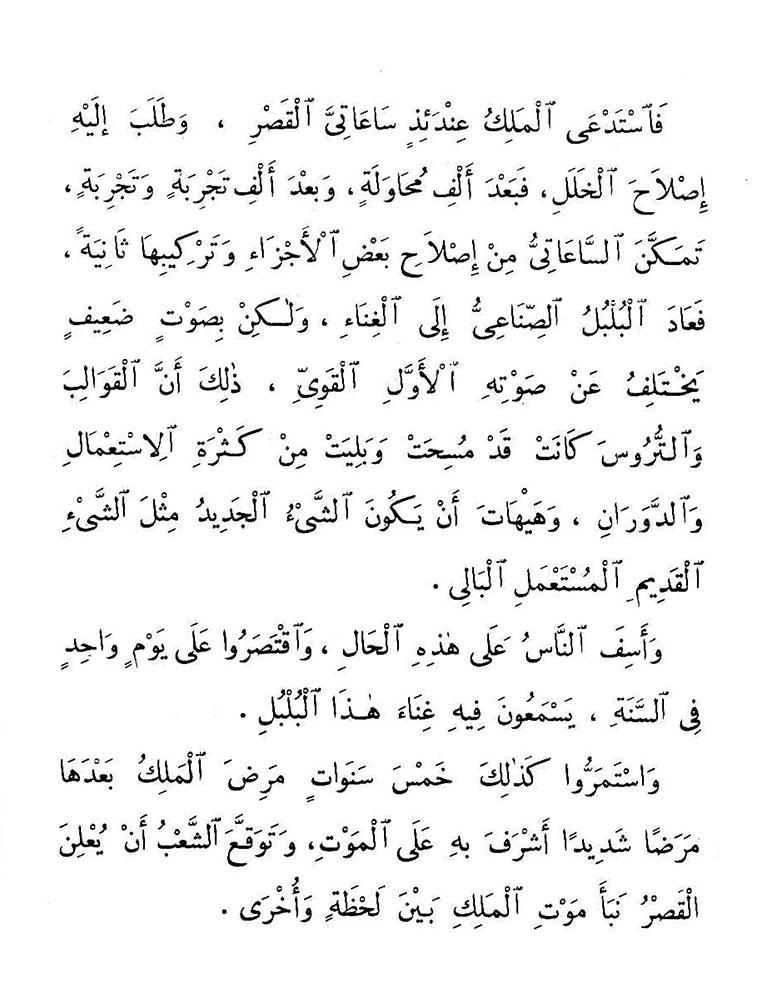 فَٱسْتَدْعَى ٱلْمَلِكُ عِنْدَئِذٍ سَاعَاتِىَّ ٱلْقَصْرِ ، وَطَلَبَ إِلَيْهِ
إِصْلاَحَ ٱلْخَلَلِ، فَبَعْدَ أَلْفِ مُحَاوَلَةٍ، وَبعْدَ أَلْفِ تَجْرِبَةٍ وَتَجْرِبَةٍ،
تَمَكَّنَ ٱلسَّاعَاتِىُّ مِنْ إِصْلاَحِ بَعْضِ ٱلْأَجْزَاءِ وَتَرْكِيبِهَا ثَانِيَةً،
فَعَادَ ٱلْبُلْبُلُ ٱلصِّنَاعِىُّ إِلَى ٱلْغِنَاءِ ، وَلٰـكِنْ بِصَوْتٍ ضَعِيفٍ
يَخْـتَلِفُ عَنْ صَوْتِهِ ٱلْأَوَّلِ ٱلْقَوِىِّ ، ذٰلِكَ أَنَّ ٱلْقَوَالِبَ
وَٱلتُّرُوسَ كَانَتْ قَدْ مُسِحَتْ وَبَلِيَتْ مِنْ كَثْرَةِ ٱلِاسْتِعْمَالِ
وَٱلدَّوَرَانِ ، وَهَيْهَاتَ أَنْ يَكُونَ ٱلشَّىْءُ ٱلْجَدِيدُ مِثْلَ ٱلشَّىْءِ
ٱلْقَدِيمِ ٱلْمُسْتَعْمَلِ ٱلْبَالِى .
وَأَسِفَ ٱلنَّاسُ عَلَى هٰذِهِ ٱلْحَالِ ، وَٱقْتَصَرُوا عَلَى يَوْمٍ وَاحِدٍ
فِى ٱلسَّنَةِ ، يَسْمَعُونَ فِيهِ غِنَاءَ هٰـذَا ٱلْبُلْبُلِ .
وَاسْتَمَرُّوا كَذٰلِكَ خَمْسَ سَنَوَاتٍ مَرِضَ ٱلْمَلِكُ بَعْدَهَا
مَرَضًا شَدِيدًا أَشْرَفَ بِهِ عَلَى ٱلْمَوْتِ، وَتَوَقَّعَ ٱلشَّعْبُ أَنْ يُعْلِنَ
الْقَصْرُ نَبَأَ مَوْتِ ٱلْمَلِكِ بَيْنَ لَحْظَةٍ وَأُخْرَى .